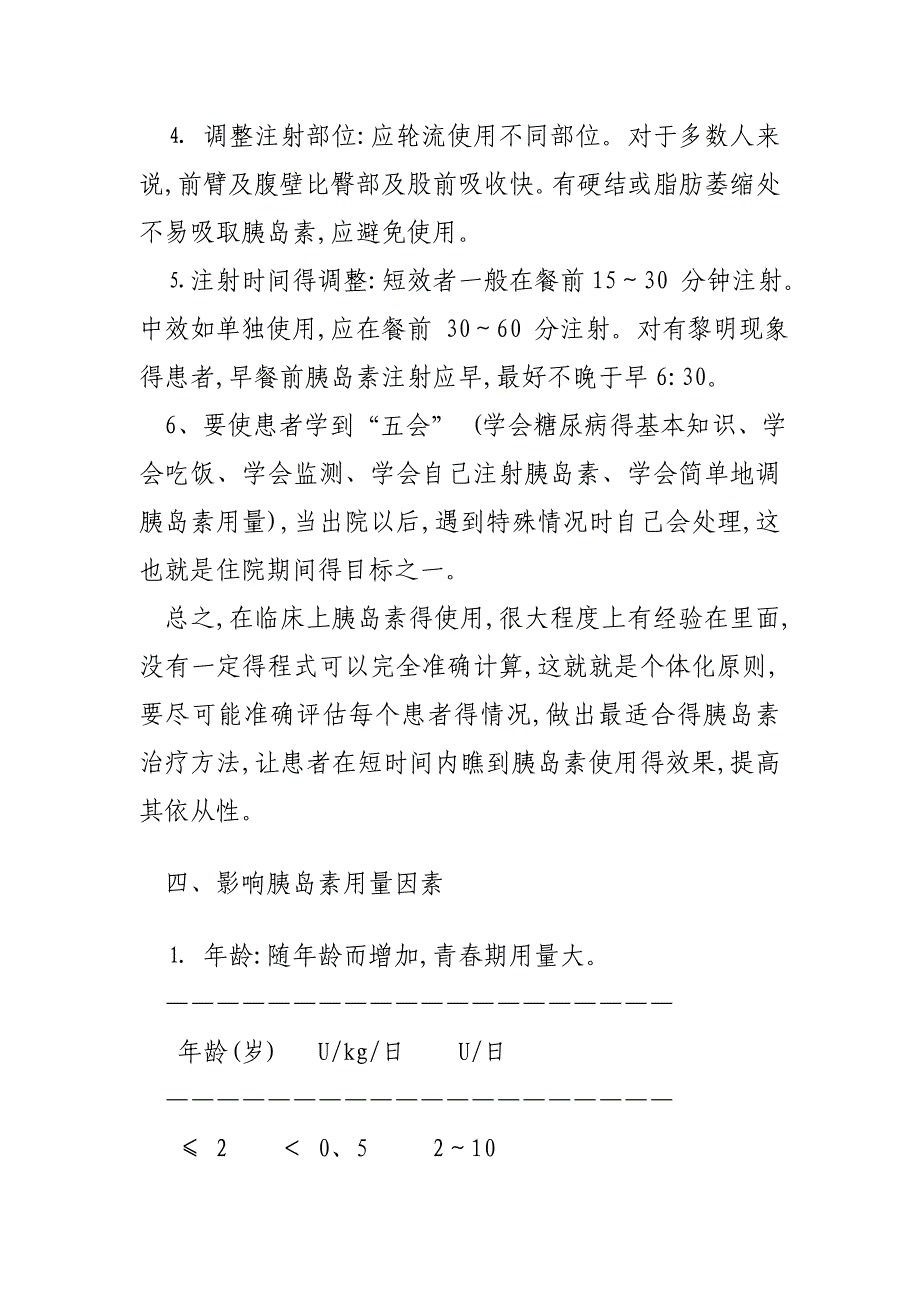 4. 调整注射部位:应轮流使用不同部位。对于多数人来
说,前臂及腹壁比臀部及股前吸收快。有硬结或脂肪萎缩处
不易吸取胰岛素,应避免使用。
5.注射时间得调整:短效者一般在餐前15～30 分钟注射。
中效如单独使用,应在餐前 30～60 分注射。对有黎明现象
得患者,早餐前胰岛素注射应早,最好不晚于早6:30。
6、要使患者学到“五会” (学会糖尿病得基本知识、学
会吃饭、学会监测、学会自己注射胰岛素、学会简单地调
胰岛素用量),当出院以后,遇到特殊情况时自己会处理,这
也就是住院期间得目标之一。
总之,在临床上胰岛素得使用,很大程度上有经验在里面,
没有一定得程式可以完全准确计算,这就就是个体化原则,
要尽可能准确评估每个患者得情况,做出最适合得胰岛素
治疗方法,让患者在短时间内瞧到胰岛素使用得效果,提高
其依从性。
四、影响胰岛素用量因素
1. 年龄:随年龄而增加,青春期用量大。
————————————————————
年龄(岁) U/kg/日 U/日
————————————————————
≤ 2 < 0、5 2～10